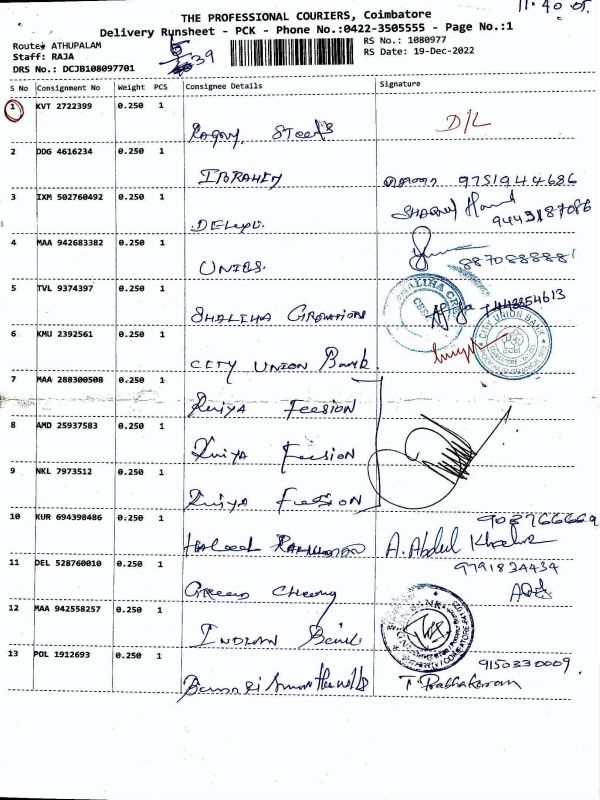 11.40
THE PROFESSIONAL COURIERS, Coimbatore
Delivery Runsheet - PCK - Phone No.:0422-3505555 - Page No.:1
Route: ATHUPALAM
RS No.: 1080977
Staff: RAJA
39
RS Date: 19-Dec-2022
DRS No.: DCJB108097701
S No Consignment No Weight PCS Consignee Details Signature
1 KVT 2722399 0.250 1
D/L
2 DDG 4616234 0.250 1
IBRAHIM 9751944686
3 IXM 502760492 0.250 1
9443187086
4 MAA 942683382 0.250 1
UNIBS. 8870888881
5 TVL 9374397 0.250 1
SHALIHA
SHALIHA 7448354613
6 KMU 2392561 0.250 1
CITY UNION BANK
CITY UNION Bank
7 MAA 288300508 0.250 1
8 AMD 25937583 0.250 1
9 NKL 7973512 0.250 1
10 KUR 694398486 0.250 1
A. Abdul
11 DEL 528760010 0.250 1 9791834434
12 MAA 942558257 0.250 1
BANK
INDIAN Bank
13 POL 1912693 0.250 1
9150330009
T. Prabhakaran